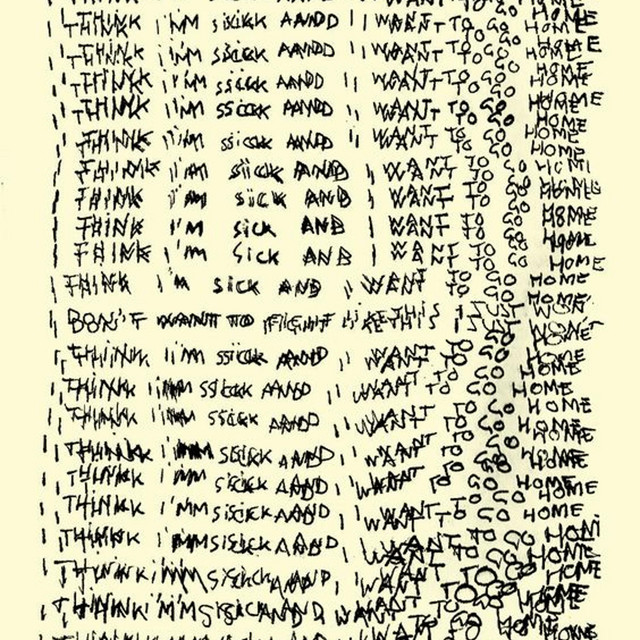 I THINK I'M SICK AND I WANT TO GO HOME
I THINK I'M SICK AND I WANT TO GO HOME
I THINK I'M SICK AND I WANT TO GO HOME
I THINK I'M SICK AND I WANT TO GO HOME
I THINK I'M SICK AND I WANT TO GO HOME
I THINK I'M SICK AND I WANT TO GO HOME
I THINK I'M SICK AND I WANT TO GO HOME
I THINK I'M SICK AND I WANT TO GO HOME
I THINK I'M SICK AND I WANT TO GO HOME
I THINK I'M SICK AND I WANT TO GO HOME
I DON'T WANT TO FIGHT LIKE THIS I JUST WON'T
I THINK I'M SICK AND I WANT TO GO HOME
I THINK I'M SICK AND I WANT TO GO HOME
I THINK I'M SICK AND I WANT TO GO HOME
I THINK I'M SICK AND I WANT TO GO HOME
I THINK I'M SICK AND I WANT TO GO HOME
I THINK I'M SICK AND I WANT TO GO HOME
I THINK I'M SICK AND I WANT TO GO HOME
I THINK I'M SICK AND I WANT TO GO HOME
I THINK I'M SICK AND I WANT TO GO HOME